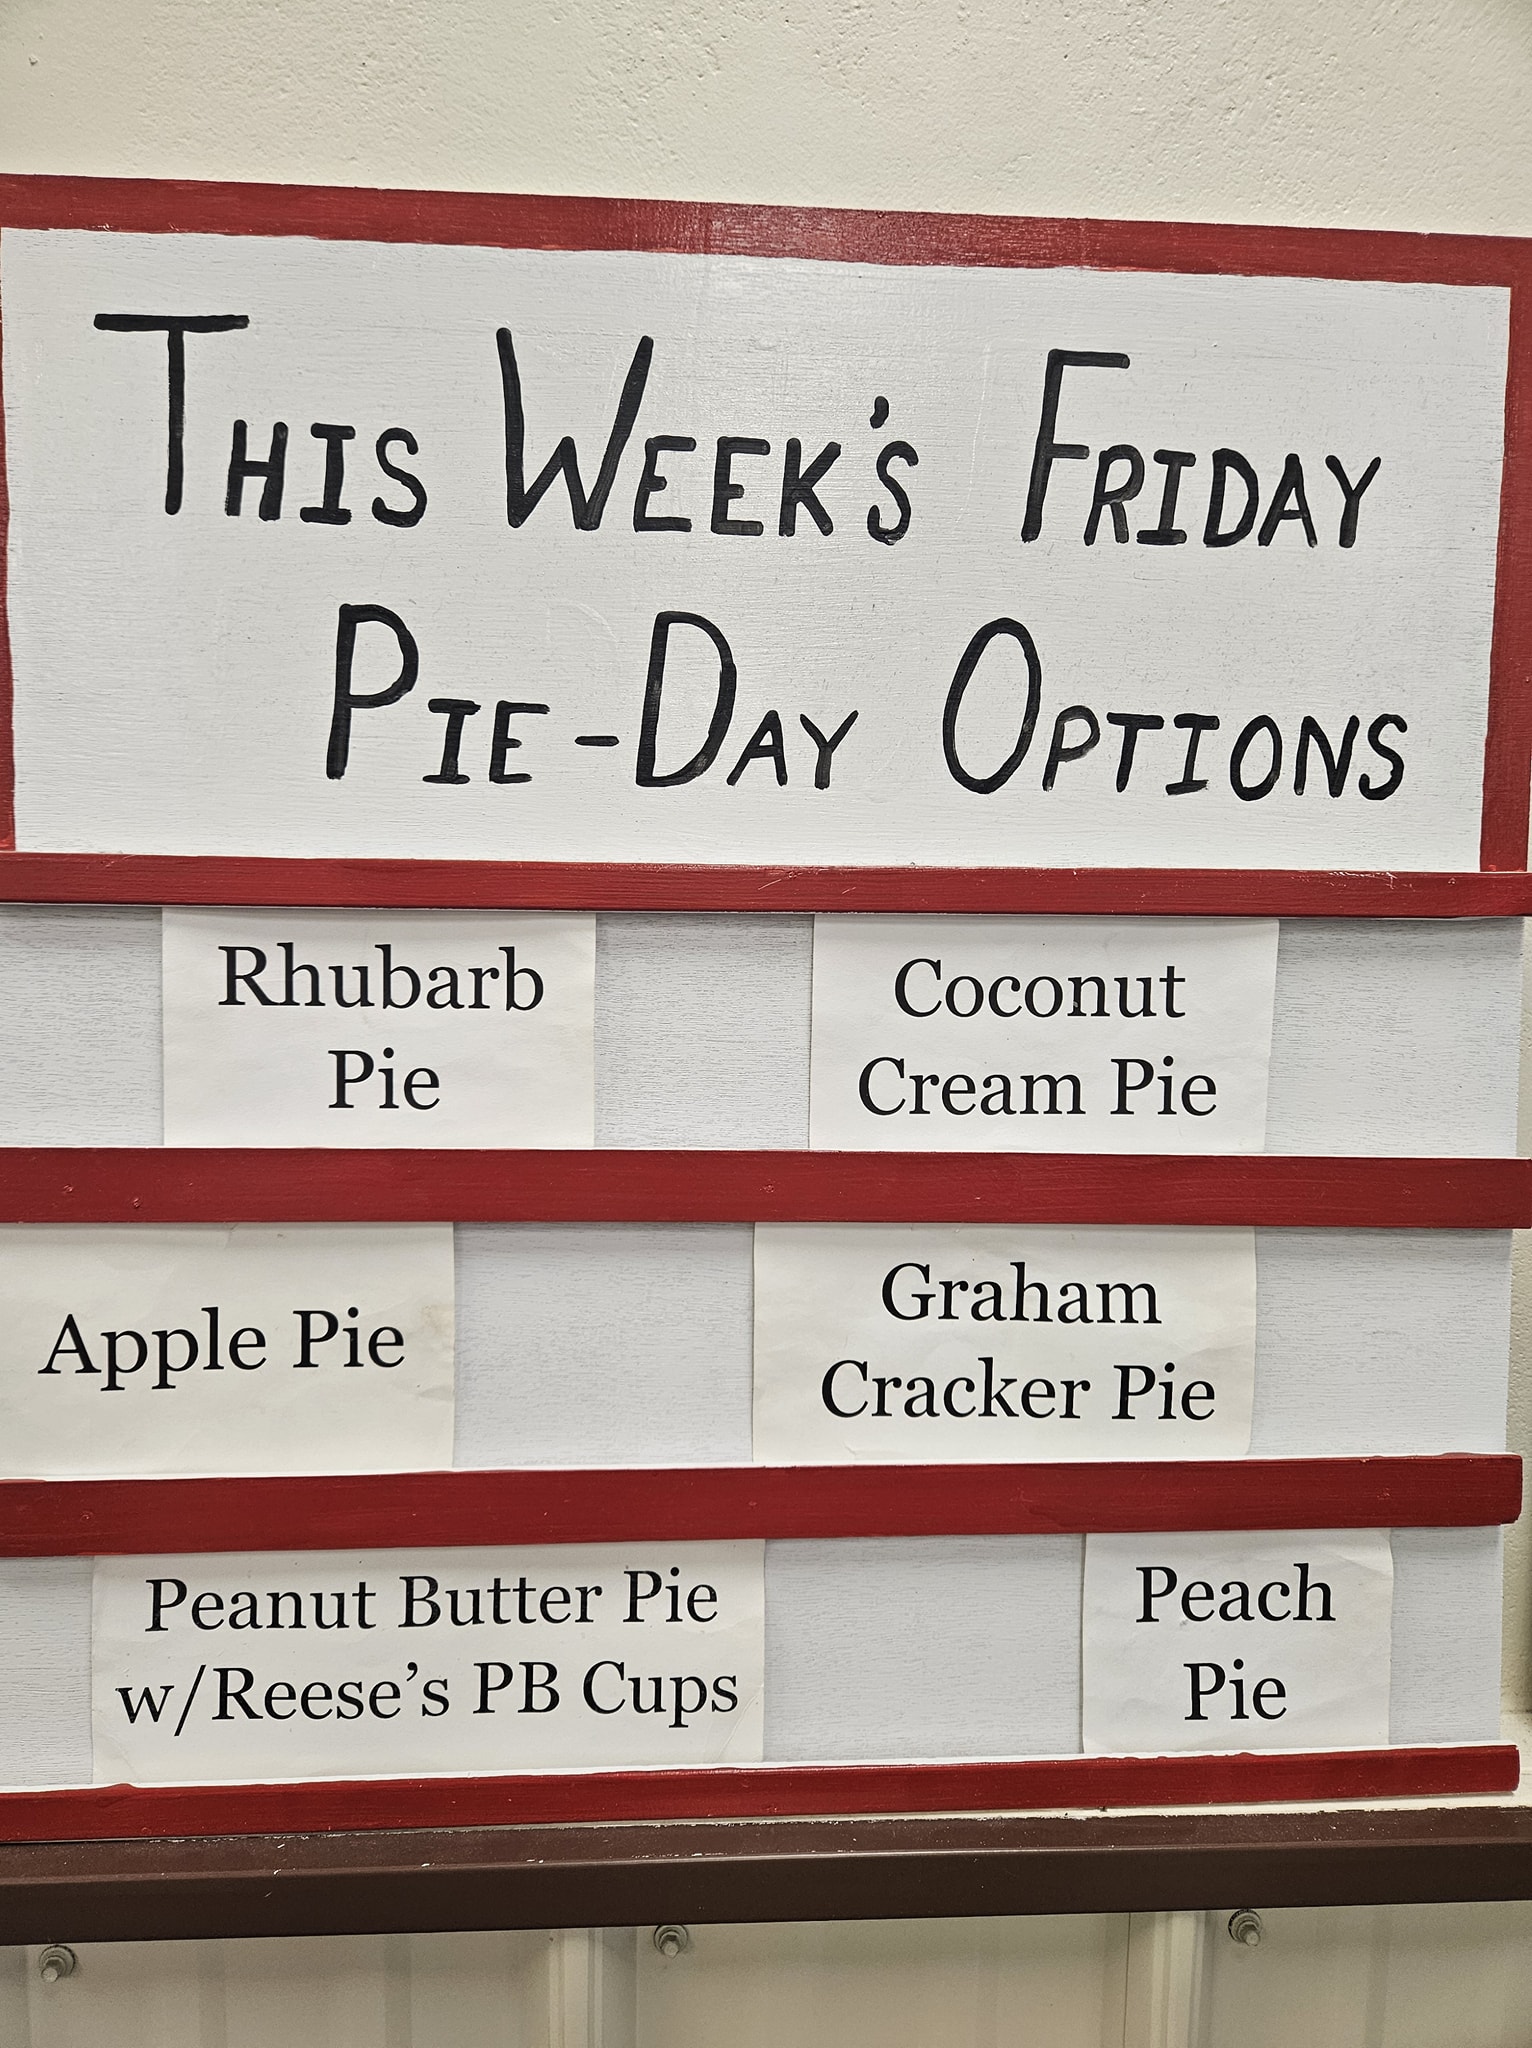 This Week's Friday
Pie-Day Options
Rhubarb
Pie
Coconut
Cream Pie
Apple Pie
Graham
Cracker Pie
Peanut Butter Pie
w/Reese’s PB Cups
Peach
Pie